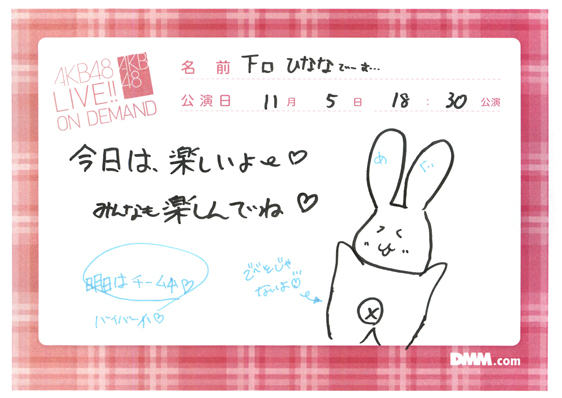 AKB48
LIVE!!
ON DEMAND
AKB
48
名前 下口 ひななでーす…
公演日 11月 5日 18:30 公演
今日は、楽しいよ〜♡
みんなも楽しんでね♡
あ ぐ
明日はチーム4♡
バイバーイ♡
でべそじゃ
ないよ♡
DMM.com